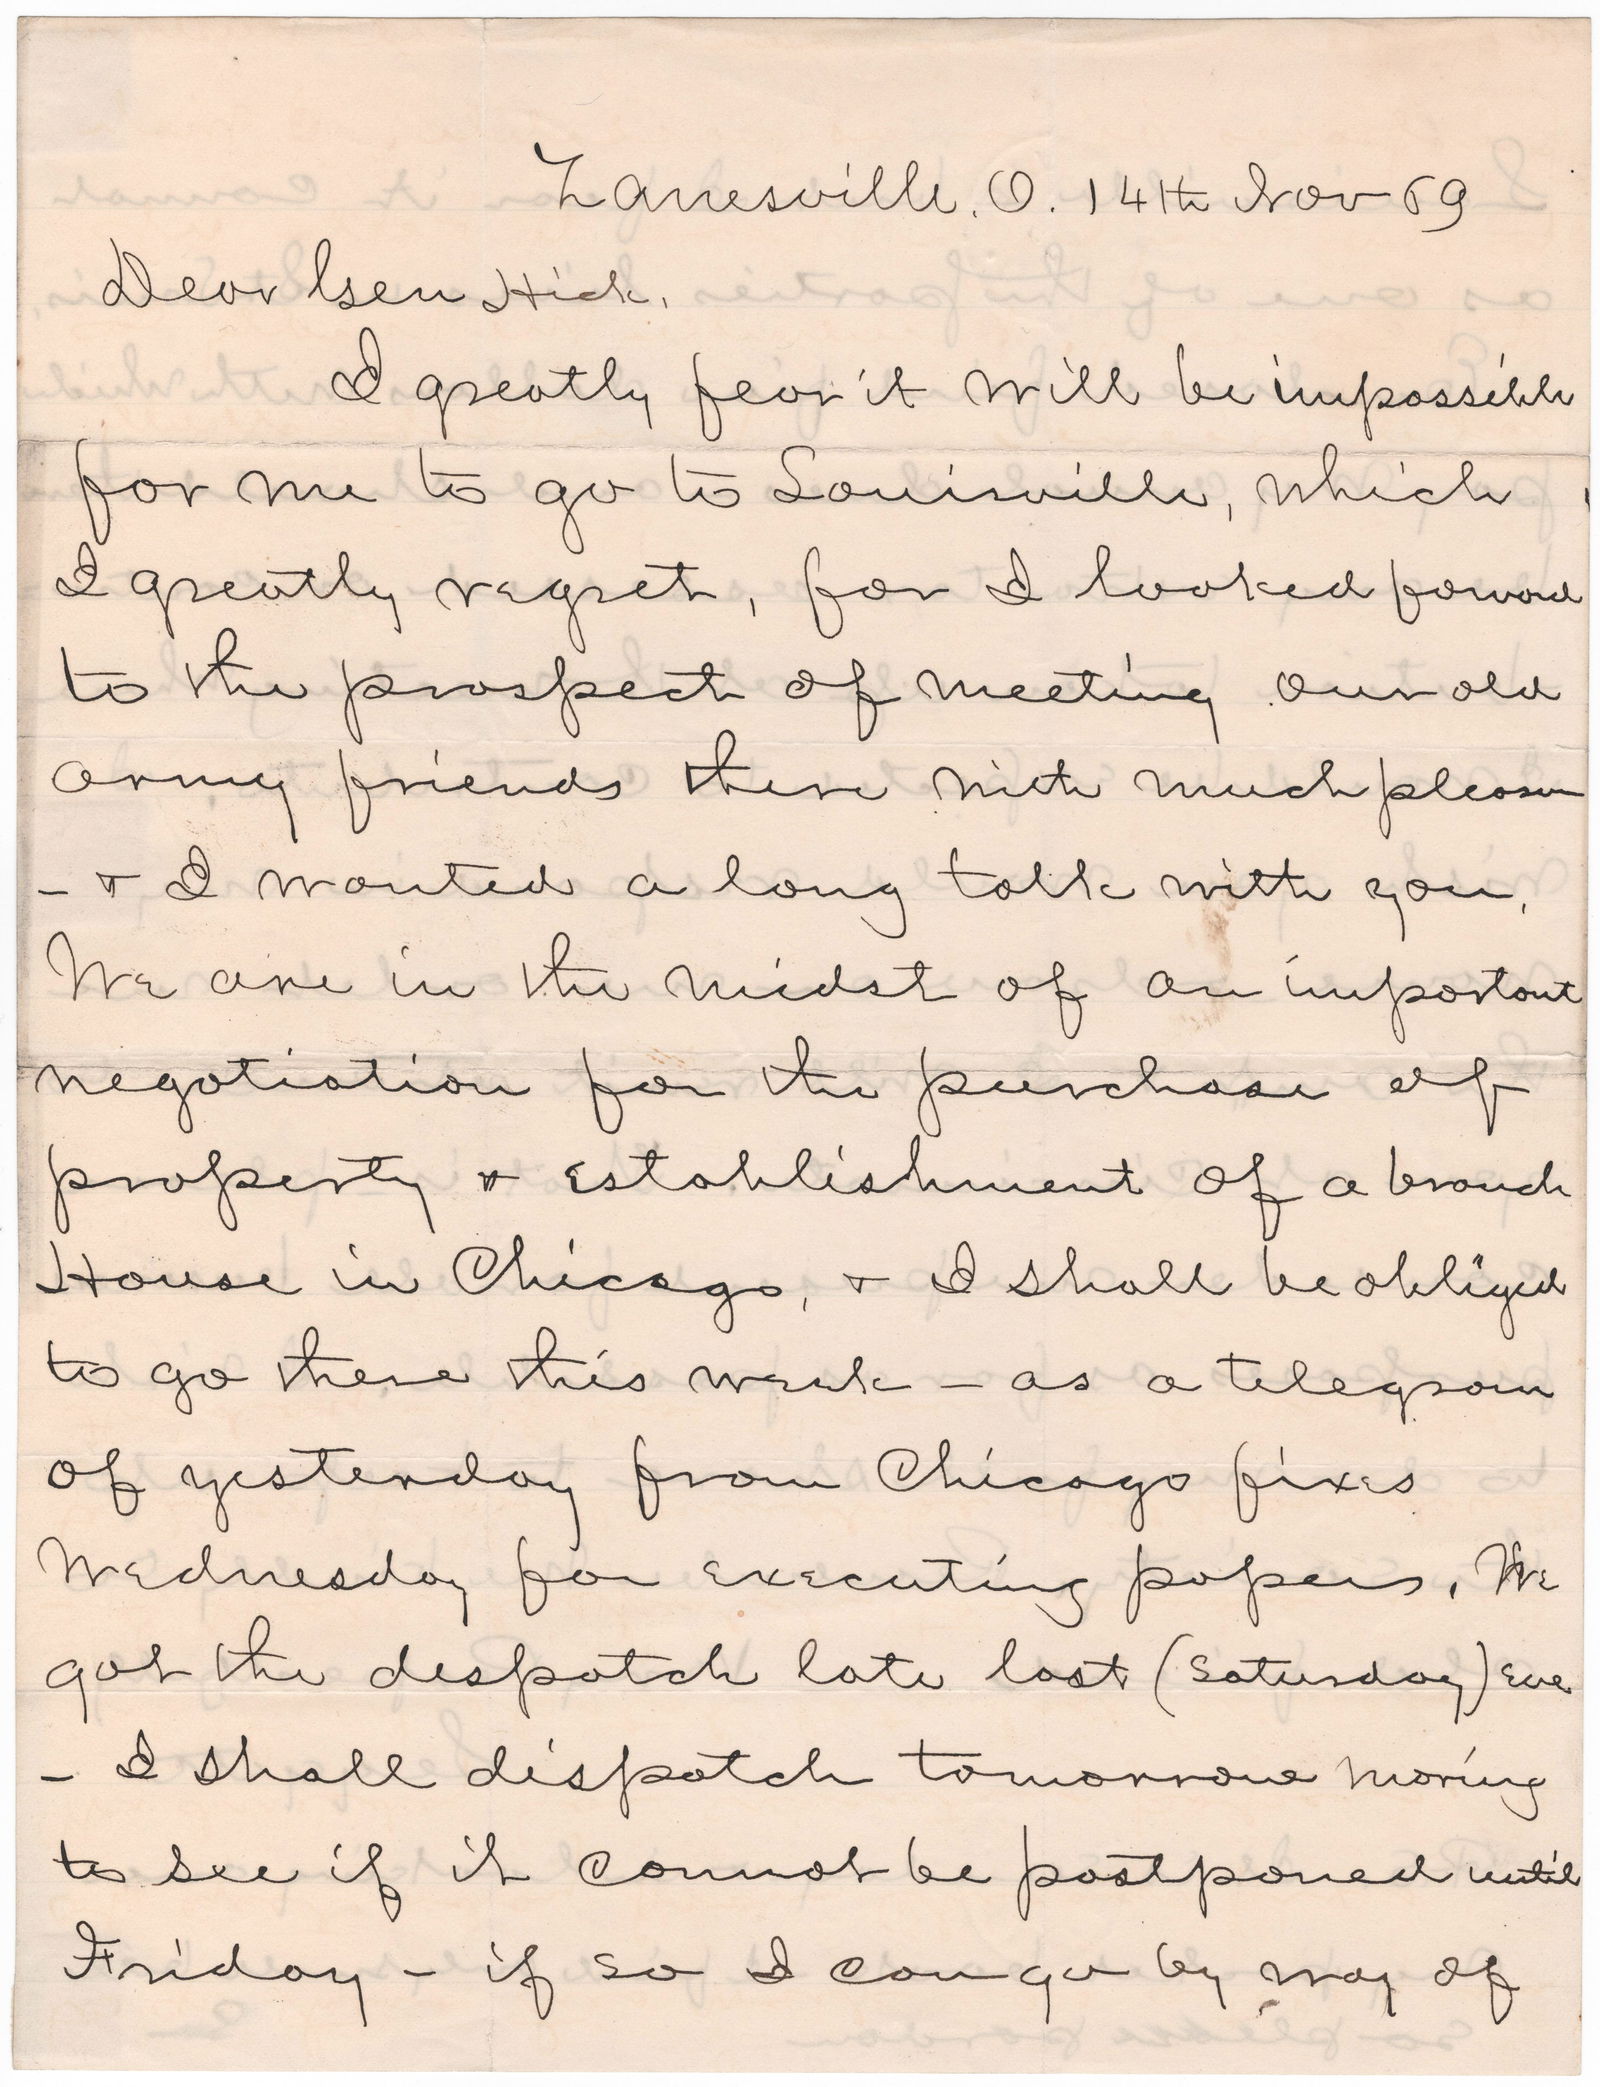 Zanesville, O. 14th Nov 69
Dear Gen Hick,
I greatly fear it will be impossible
for me to go to Louisville, which
I greatly regret, for I looked forward
to the prospect of meeting our old
army friends there with much pleasure
- & I wanted a long talk with you.
We are in the midst of an important
negotiation for the purchase of
property & establishment of a branch
House in Chicago, & I shall be obliged
to go there this week - as a telegram
of yesterday from Chicago fixes
Wednesday for executing papers. We
got the despatch late last (Saturday) eve
- I shall dispatch tomorrow moring
to see if it cannot be postponed until
Friday - if so I can go by way of